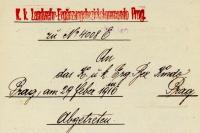 K. k. Landwehr-Ergänzungsbezirkskommando Prag.
zu No 4008 E
An
das K. u. k. Erg. Bez. Kmdo
Prag
Prag, am 29 Feber 1916
Abgetreten.